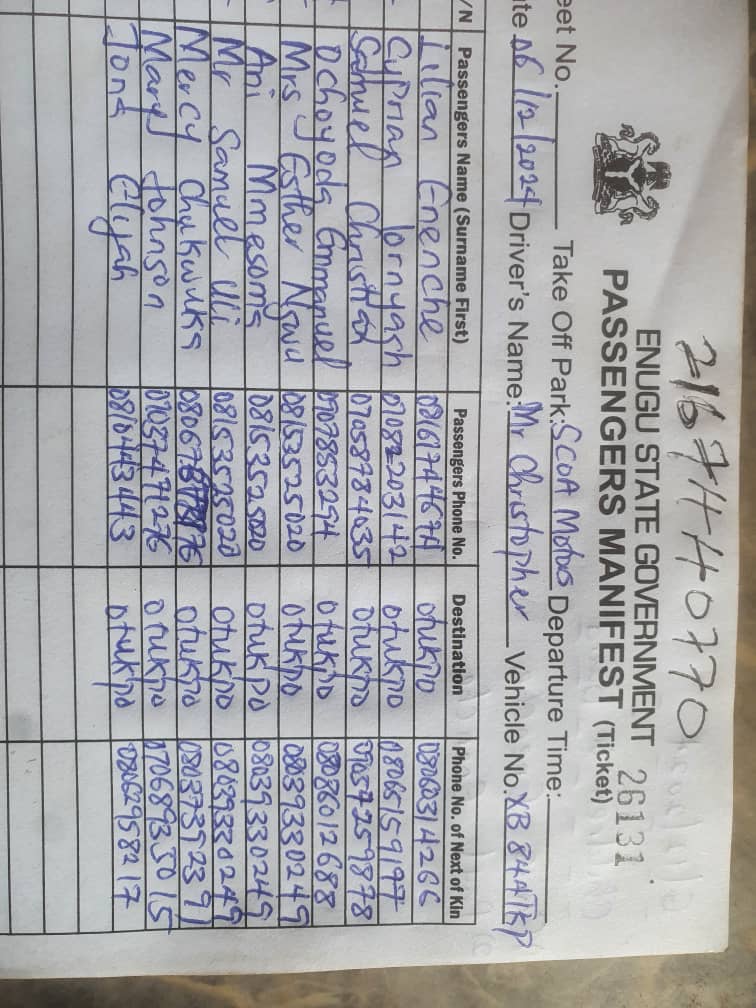 2167440770
ENUGU STATE GOVERNMENT 26131
PASSENGERS MANIFEST (Ticket)
eet No. Take Off Park: SCOA Motors Departure Time:
ate 06/12/2024 Driver's Name: Mr Christopher Vehicle No. XB 844TKP
/N Passengers Name (Surname First) Passengers Phone No. Destination Phone No. of Next of Kin
Lilian Enenche 08161744674 otukpo 08060314266
Cyprian Iornyagh 07082203142 otukpo 08065159197
Samuel Christian 07058784035 otukpo
Ochoyoda Emmanuel 0907853254 otukpo 08086012688
Mrs Esther Ngwu 08153525020 otukpo 08039330249
Ani Mmesoma 08153525020 otukpo 08039330249
Mr Samuel Uli 08153525020 otukpo 08039330249
Mercy Chukwuka otukpo 08037352391
Mary Johnson 07037471276 otukpo 07068935015
Jona Elijah 0816443443 otukpo 08062958217